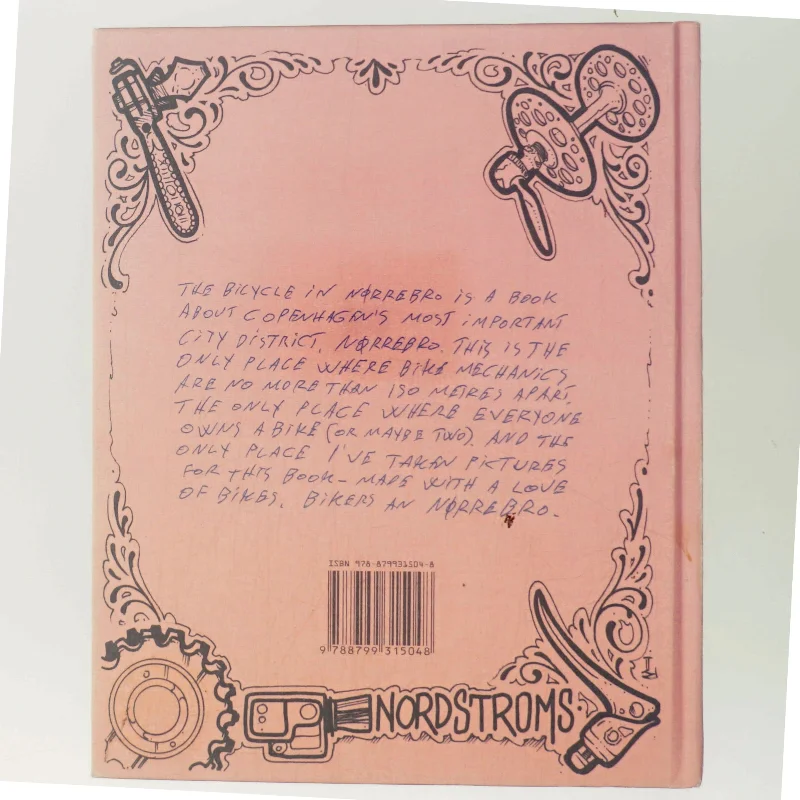 THE BICYCLE IN NØRREBRO IS A BOOK
ABOUT COPENHAGEN'S MOST IMPORTANT
CITY DISTRICT, NØRREBRO. THIS IS THE
ONLY PLACE WHERE BIKE MECHANICS
ARE NO MORE THAN 150 METRES APART.
THE ONLY PLACE WHERE EVERYONE
OWNS A BIKE (OR MAYBE TWO). AND THE
ONLY PLACE I'VE TAKEN PICTURES
FOR THIS BOOK – MADE WITH A LOVE
OF BIKES, BIKERS AN NØRREBRO.
ISBN 978-879931504-8
9 788799 315048
NORDSTROMS